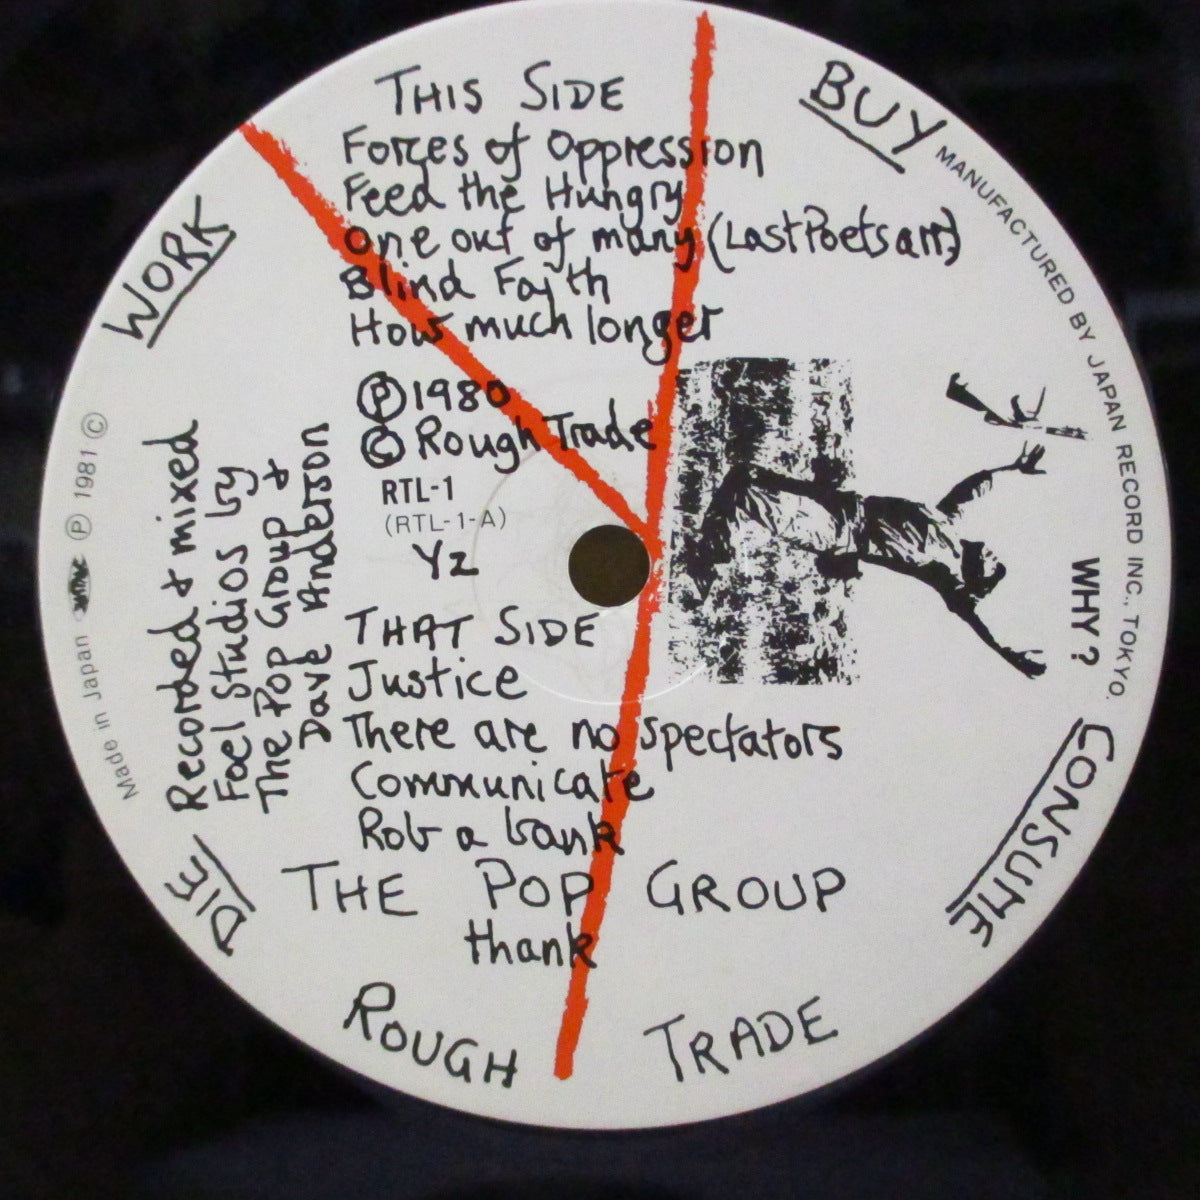 THIS SIDE
Forces of Oppression
Feed the Hungry
One out of many (Last Poets arr)
Blind Faith
How much longer
Ⓟ1980
© Rough Trade
RTL-1
(RTL-1-A)
Yz
THAT SIDE
Justice
There are no spectators
Communicate
Rob a bank
THE POP GROUP
thank
ROUGH TRADE
WORK
BUY
CONSUME
DIE
WHY?
MANUFACTURED BY JAPAN RECORD INC., TOKYO.
Recorded & mixed
Foel Studios by
The Pop Group &
Dave Anderson
Made in Japan
Ⓟ 1981 ©